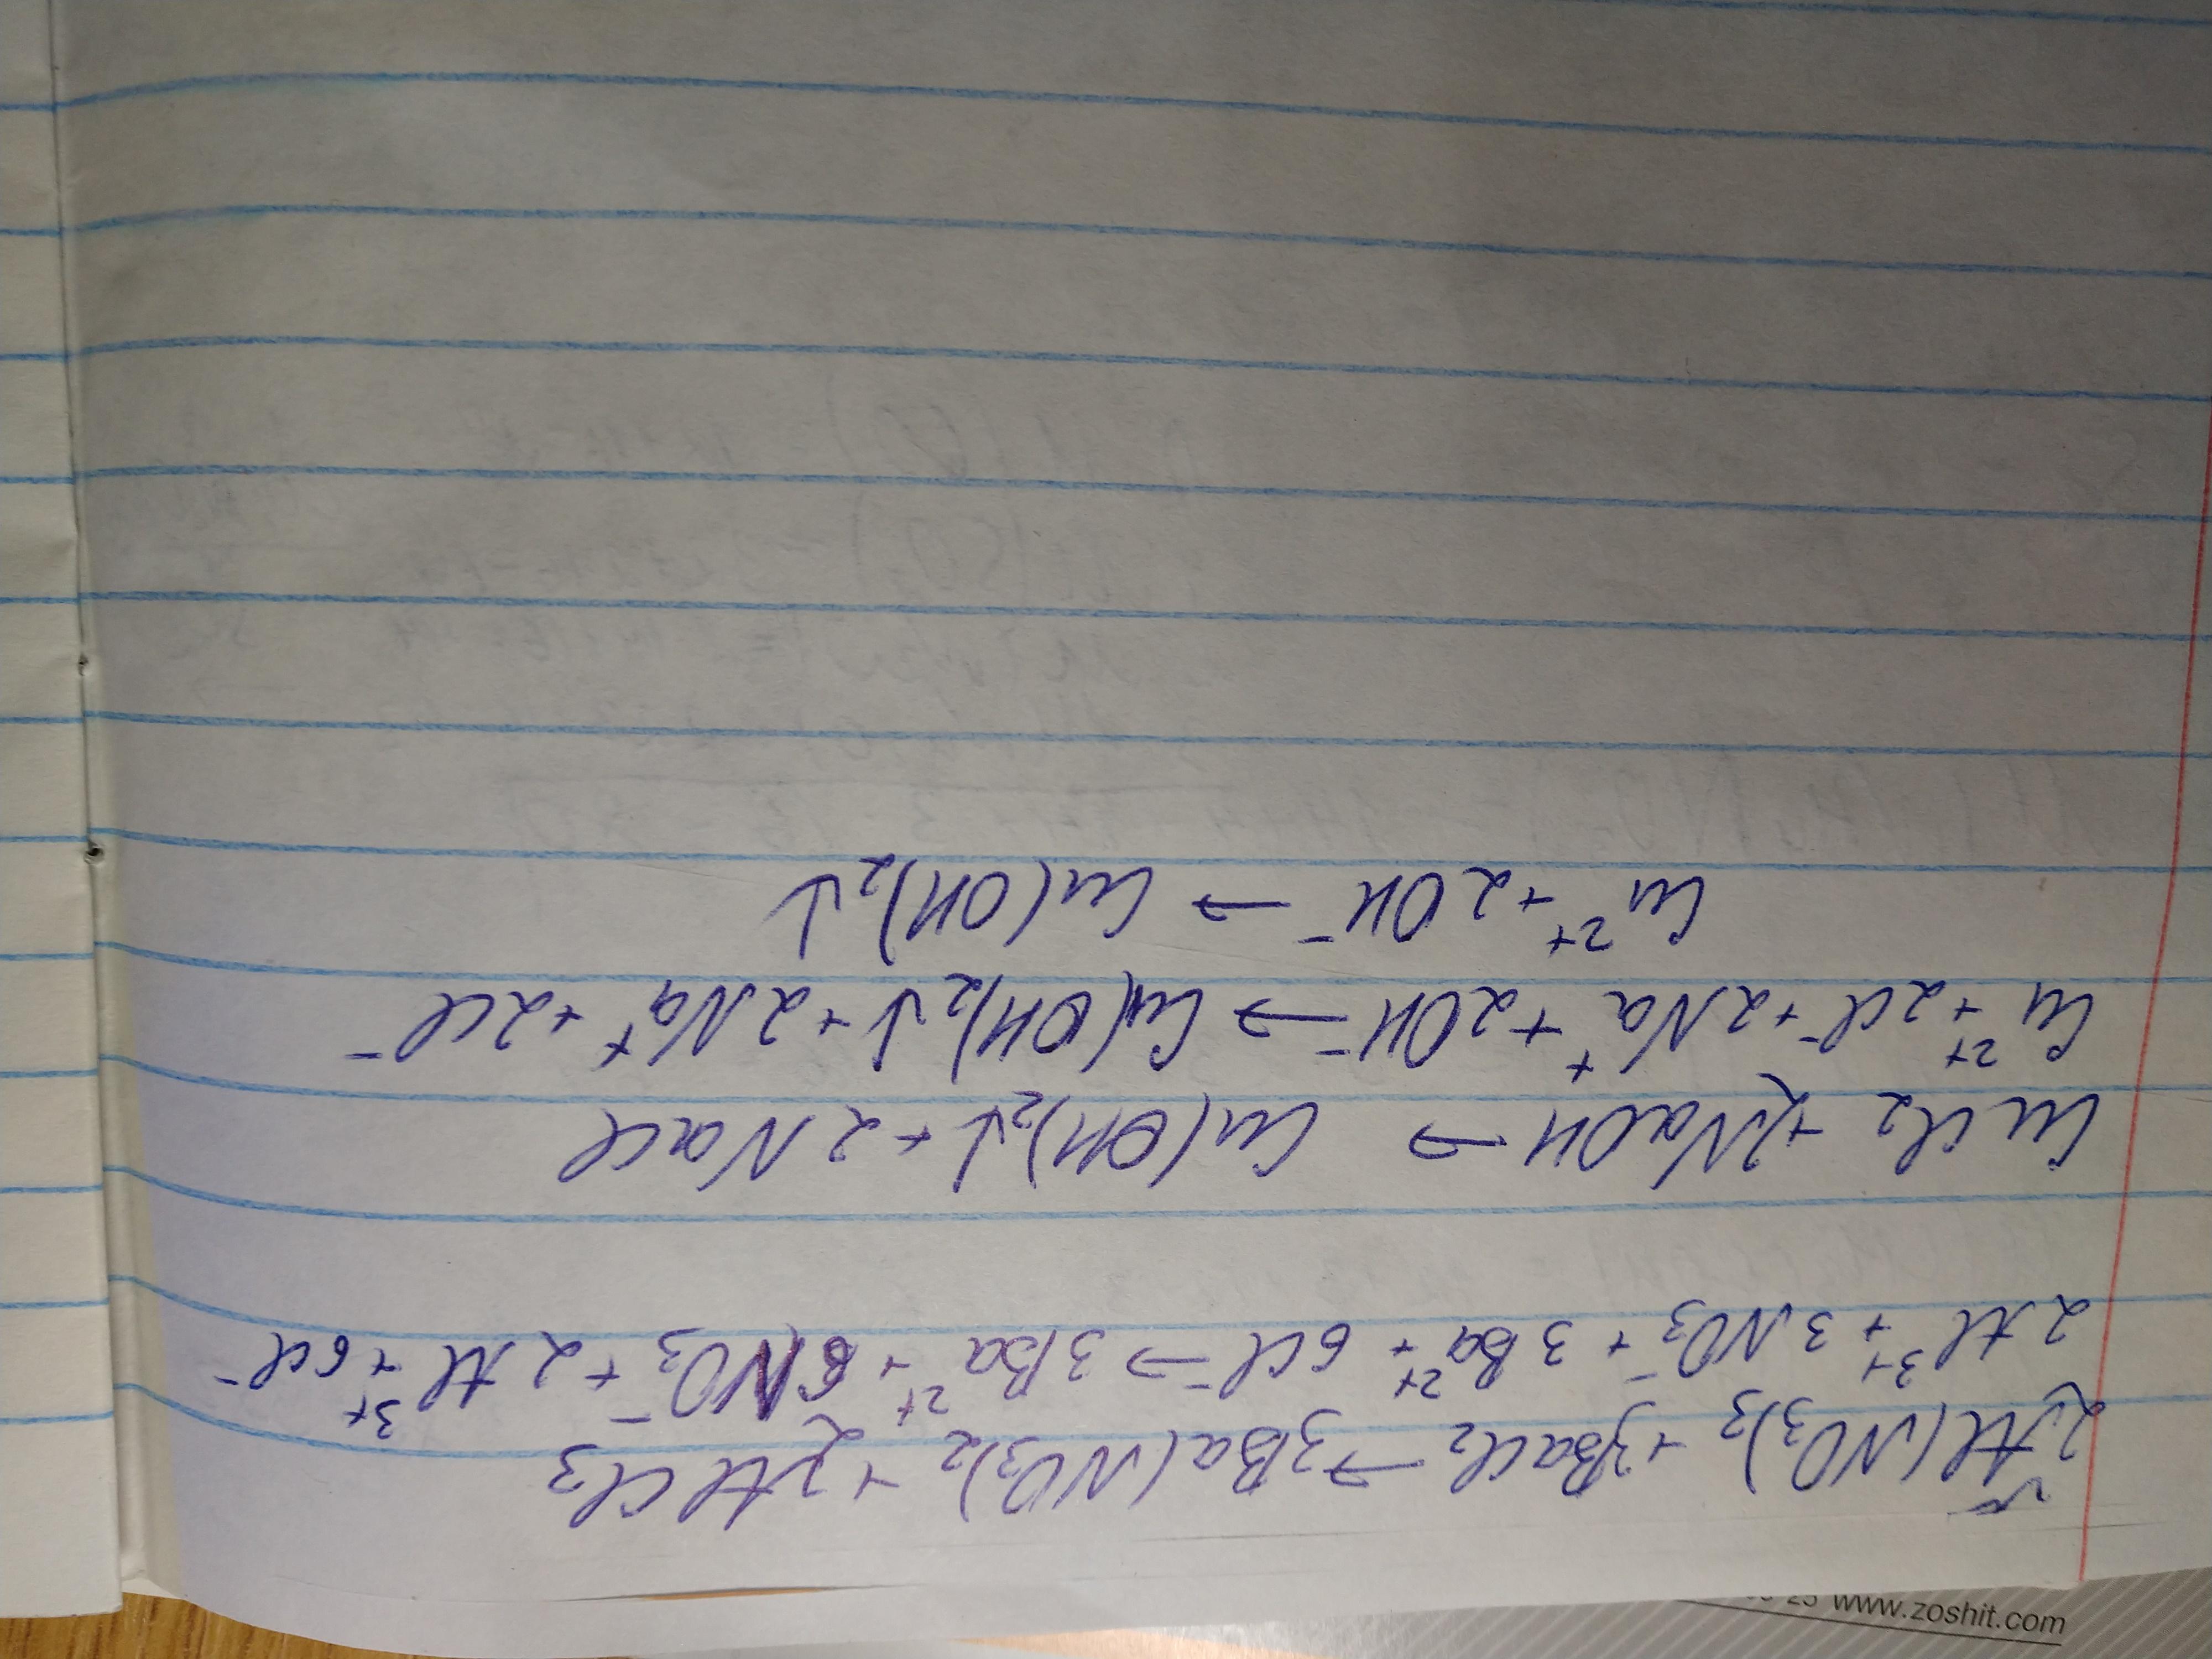 2Al(NO₃)₃ + 3BaCl₂ → 3Ba(NO₃)₂ + 2AlCl₃
2Al³⁺ + 3NO₃⁻ + 3Ba²⁺ + 6Cl⁻ → 3Ba²⁺ + 6NO₃⁻ + 2Al³⁺ + 6Cl⁻
CuCl₂ + 2NaOH → Cu(OH)₂↓ + 2NaCl
Cu²⁺ + 2Cl⁻ + 2Na⁺ + 2OH⁻ → Cu(OH)₂↓ + 2Na⁺ + 2Cl⁻
Cu²⁺ + 2OH⁻ → Cu(OH)₂↓
www.zoshit.com